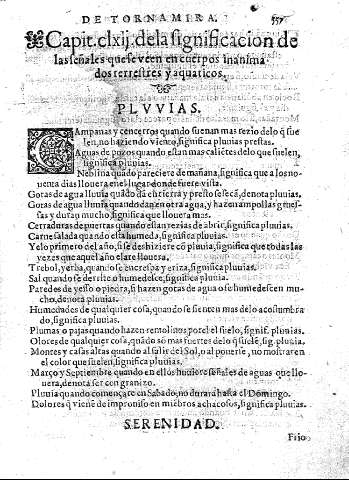 DE TORNAMIRA. 557
Capit. clxij. de la significacion de
las señales que se veen en cuerpos inanima
dos terrestres y aquaticos.
PLVVIAS.
CAmpanas y cencerros quando suenan mas rezio de lo q̃ sue
len, no haziendo viento, significa pluvias prestas.
Aguas de pozos quando estan mas caliẽtes delo que suelen,
significa pluvias.
Neblina quado pareciere de mañana, significa que a los no-
uenta dias llouera en el lugar donde fuere vista.
Gotas de agua lluuia quãdo dã en tierra y presto se secã, denota pluuias.
Gotas de agua lluuia quando dan en otra agua, y hazen ampollas gruef-
sas y duran mucho, significa que llouera mas.
Cerraduras de puertas quando estan rezias de abrir, significa pluuias.
Carne salada quando està humeda, significa pluuias.
Yelo primero del año, si se deshiziere cõ pluuia, significa que todas las
vezes que aquel año elare llouera.
Trebol, yerba, quando se encrespa y eriza, significa pluuias.
Sal quando se derrite o humedesce, significa pluuia.
Paredes de yesso o piedra, si hazen gotas de agua o se humedescen mu-
cho, denota pluuias.
Humedades de qualquier cosa, quando se sienten mas de lo acostumbra
do, significa pluuias.
Plumas o pajas quando hazen remolinos por el suelo, signif. pluuias.
Olores de qualquier cosa, quãdo só mas fuertes delo q̃ suelẽ, sig. pluuia.
Montes y casas altas quando al salir del Sol, o al ponerse, no mostraren
el color que suelen, significa pluuias.
Março y Septiembre quando en ellos huuiere señales de aguas que llo-
uera, denota ser con granizo.
Pluuia quando començare en Sabado, no durará hasta el Domingo.
Dolores q̃ vienẽ de improuiso en miẽbros achacosos, significa pluuias.
SERENIDAD.
Fijo